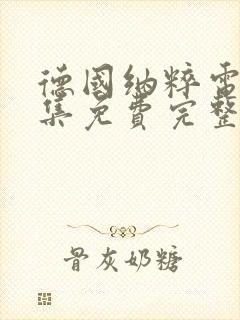 德國納粹電
集免費完整
骨灰奶糖